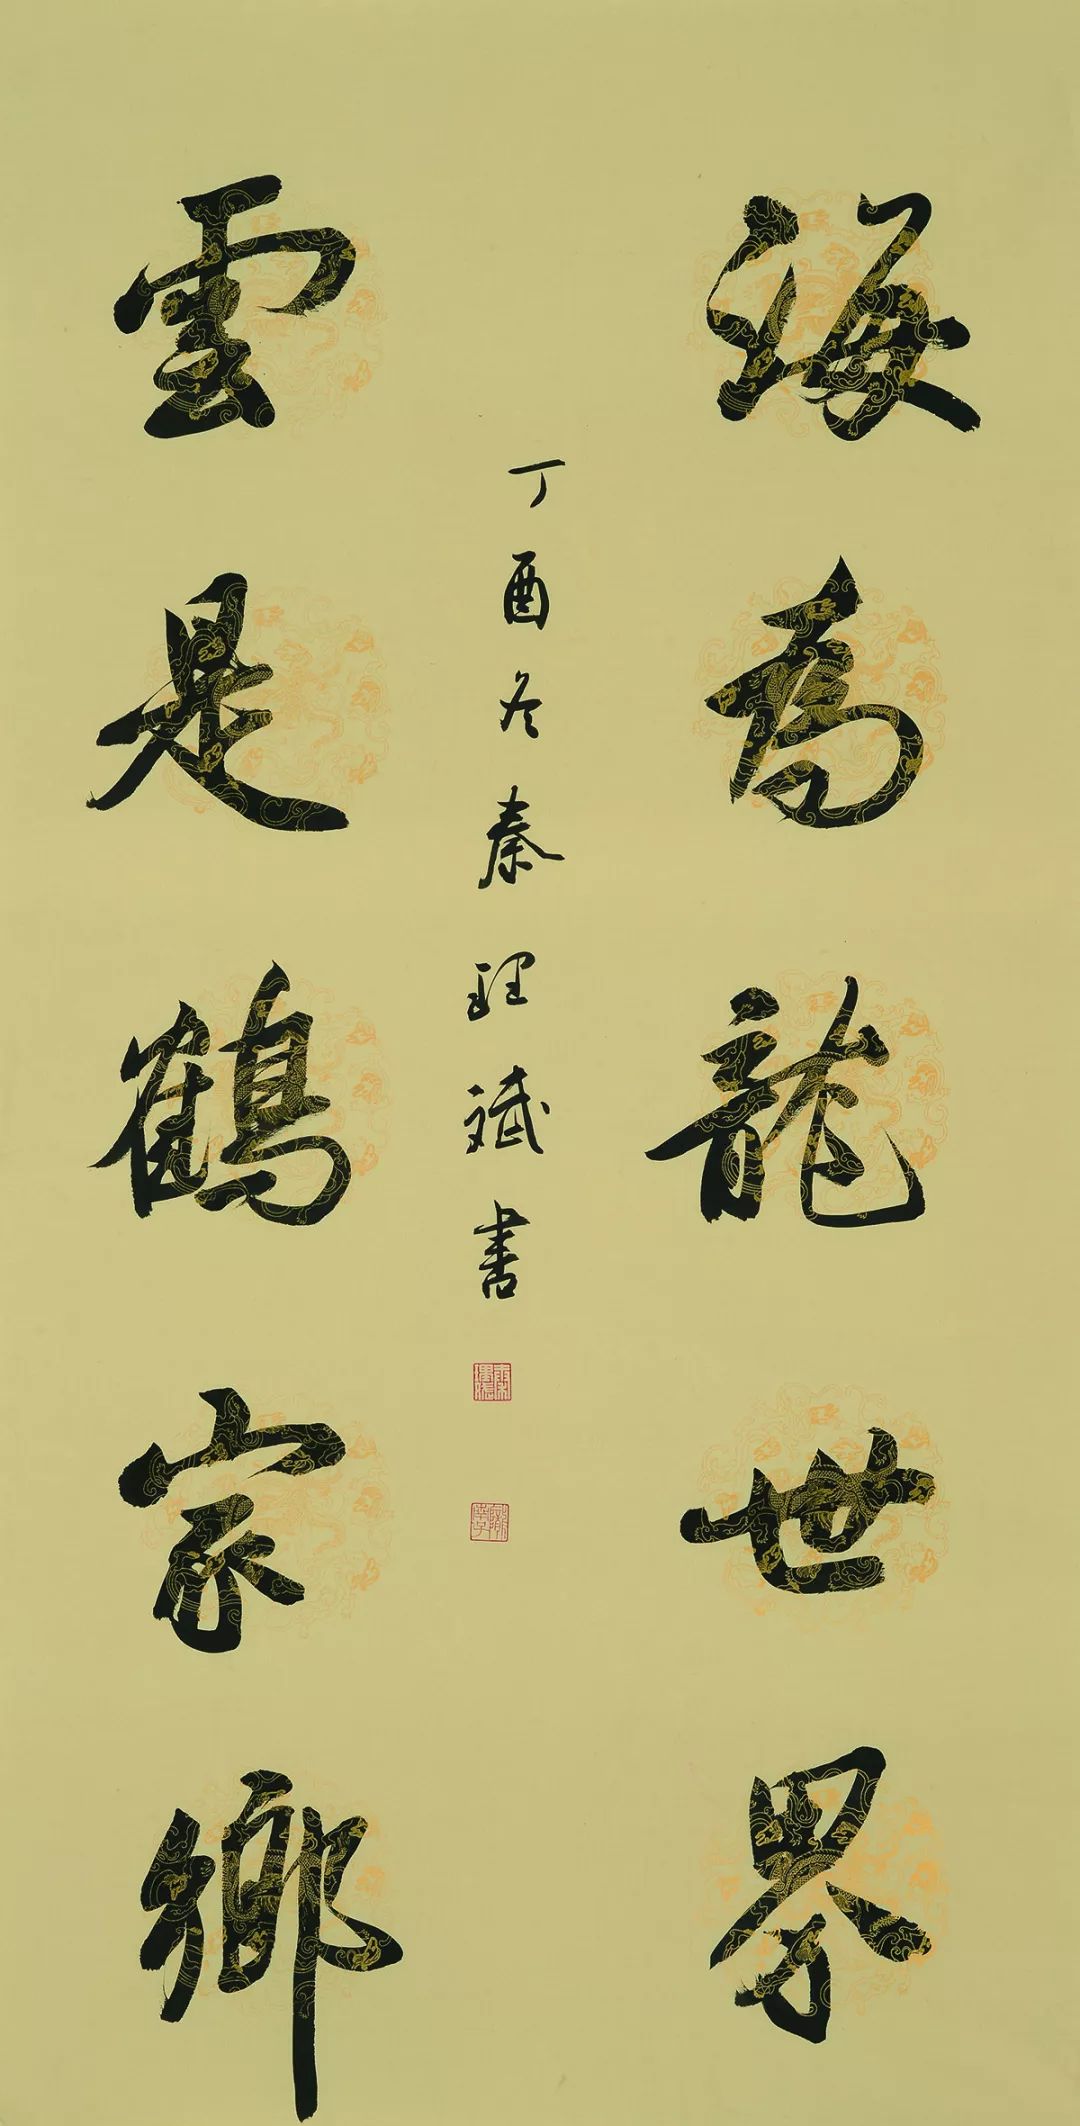 海為龍世界
雲是鶴家鄉
丁酉冬秦理斌書